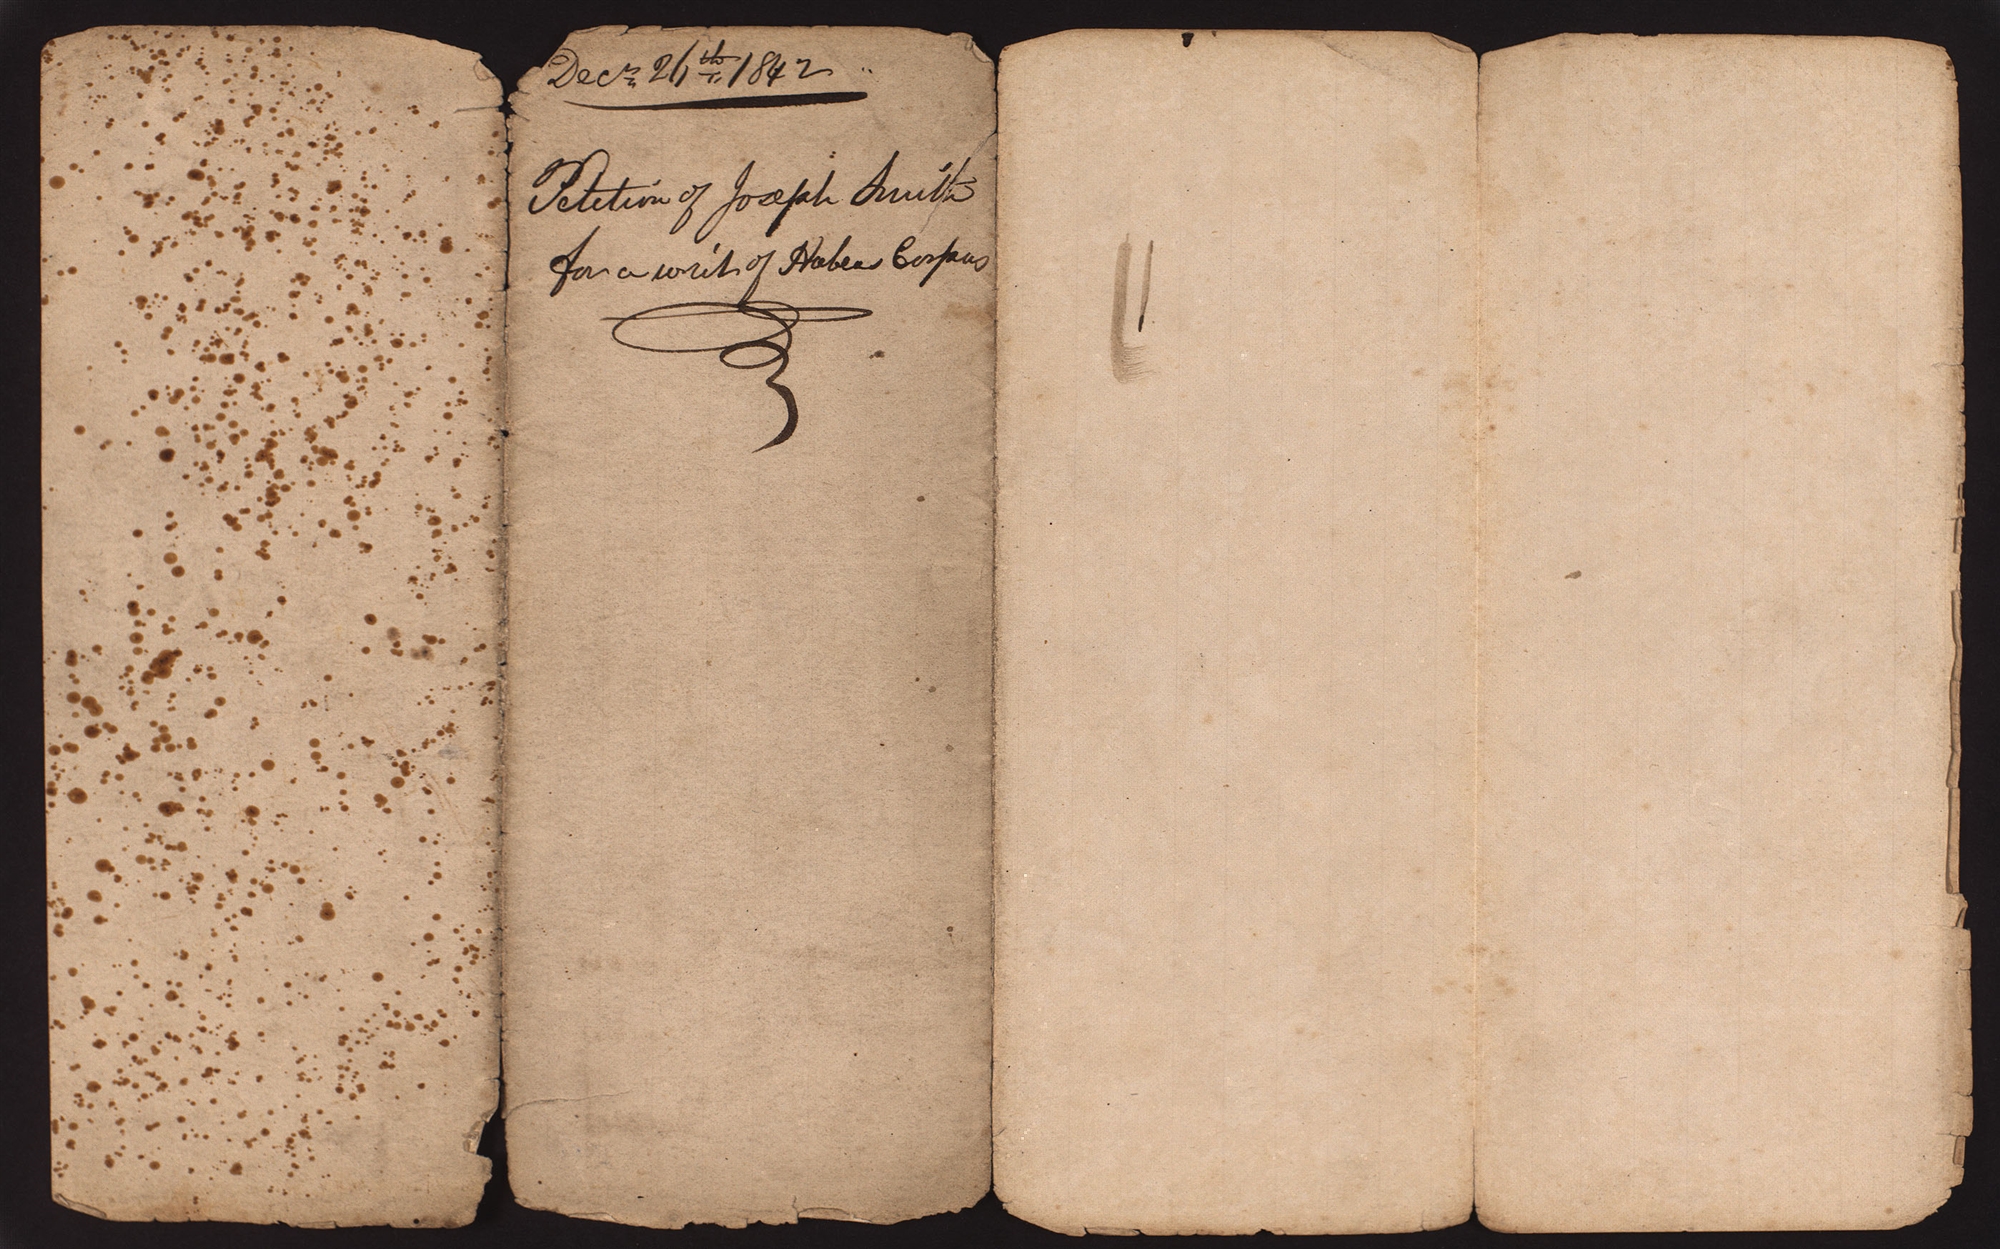 Decr 26th 1842
Petition of Joseph Smith
for a writ of Habeas Corpus